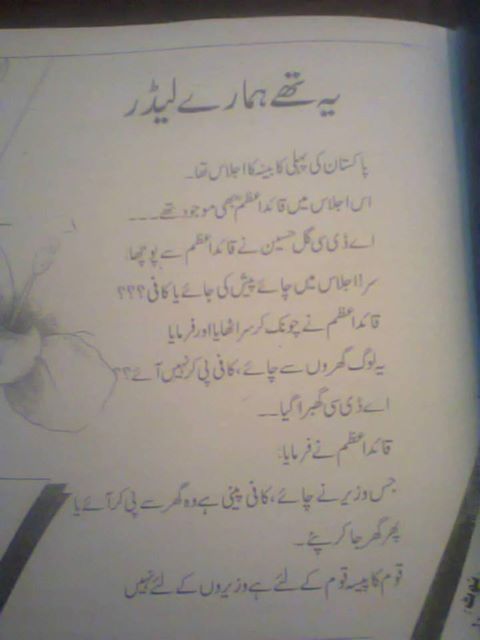 یہ تھے ہمارے لیڈر
پاکستان کی پہلی کابینہ کا اجلاس تھا۔
اس اجلاس میں قائداعظم بھی موجود تھے۔۔۔
اے ڈی سی گل حسین نے قائداعظم سے پوچھا:
سر! اجلاس میں چائے پیش کی جائے یا کافی؟؟؟
قائداعظم نے چونک کر سر اٹھایا اور فرمایا
یہ لوگ گھروں سے چائے، کافی پی کر نہیں آئے؟؟
اے ڈی سی گھبرا گیا۔۔
قائداعظم نے فرمایا:
جس وزیر نے چائے، کافی پینی ہے وہ گھر سے پی کر آئے یا
پھر گھر جا کر پئے۔
قوم کا پیسہ قوم کے لئے ہے وزیروں کے لئے نہیں